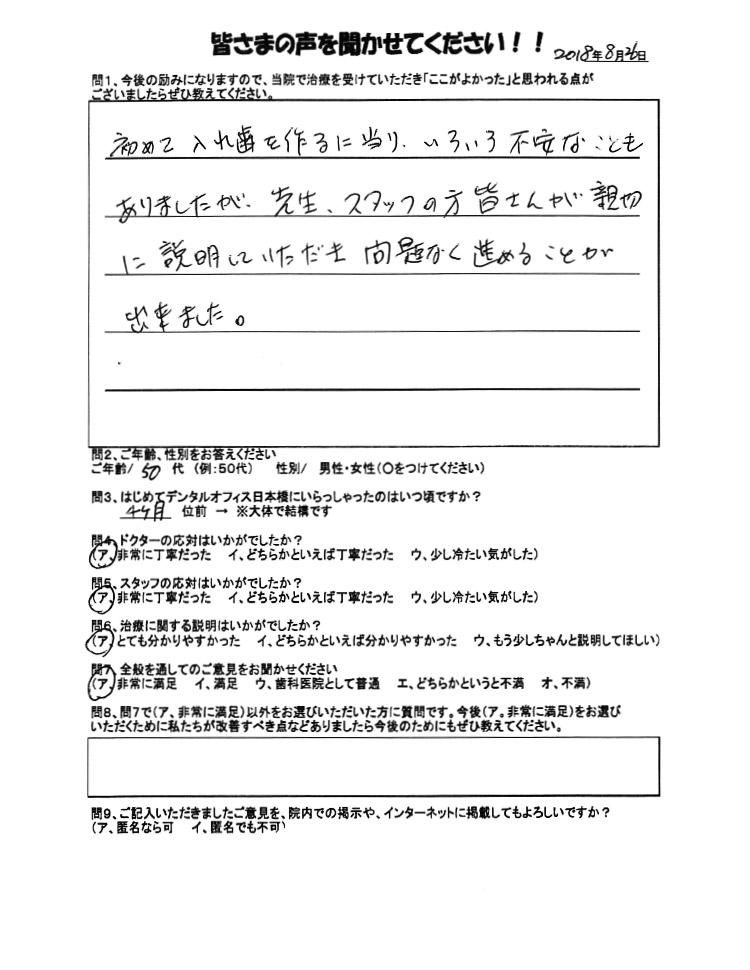 皆さまの声を聞かせてください！！ 2018年8月26日
問1、今後の励みになりますので、当院で治療を受けていただき「ここがよかった」と思われる点が
ございましたらぜひ教えてください。
初めて入れ歯を作るに当り、いろいろ不安なことも
ありましたが、先生、スタッフの方皆さんが親切
に説明していただき問題なく進めることが
出来ました。
問2、ご年齢、性別をお答えください
ご年齢/ 50 代 (例:50代) 性別/ 男性・女性(〇をつけてください)
問3、はじめてデンタルオフィス日本橋にいらっしゃったのはいつ頃ですか？
4ヶ月 位前 → ※大体で結構です
問4、ドクターの応対はいかがでしたか？
(ア、非常に丁寧だった イ、どちらかといえば丁寧だった ウ、少し冷たい気がした)
問5、スタッフの応対はいかがでしたか？
(ア、非常に丁寧だった イ、どちらかといえば丁寧だった ウ、少し冷たい気がした)
問6、治療に関する説明はいかがでしたか？
(ア、とても分かりやすかった イ、どちらかといえば分かりやすかった ウ、もう少しちゃんと説明してほしい)
問7、全般を通してのご意見をお聞かせください
(ア、非常に満足 イ、満足 ウ、歯科医院として普通 エ、どちらかというと不満 オ、不満)
問8、問7で(ア、非常に満足)以外をお選びいただいた方に質問です。今後(ア。非常に満足)をお選び
いただくために私たちが改善すべき点などありましたら今後のためにもぜひ教えてください。
問9、ご記入いただきましたご意見を、院内での掲示や、インターネットに掲載してもよろしいですか？
(ア、匿名なら可 イ、匿名でも不可)